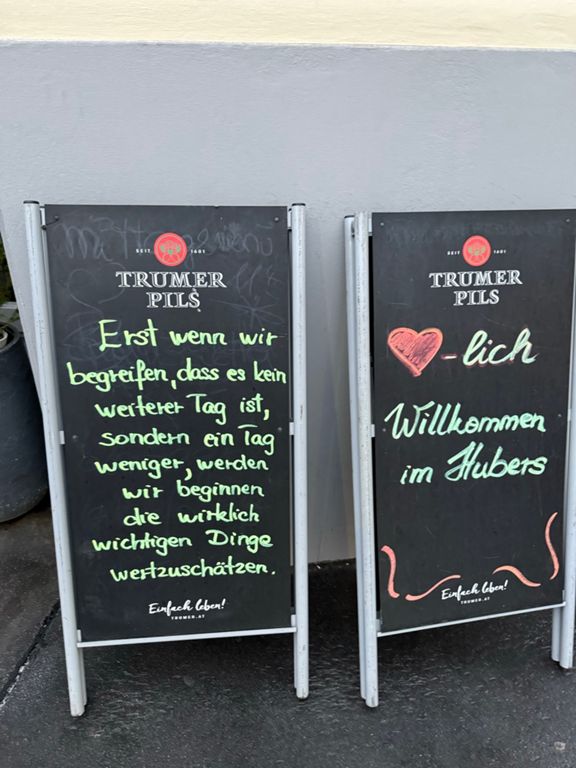 SEIT 1601
TRUMER
PILS
Erst wenn wir
begreifen, dass es kein
weiterer Tag ist,
sondern ein Tag
weniger, werden
wir beginnen
die wirklich
wichtigen Dinge
wertzuschätzen.
Einfach leben!
TRUMER.AT
SEIT 1601
TRUMER
PILS
-lich
Willkommen
im Hubers
Einfach leben!
TRUMER.AT